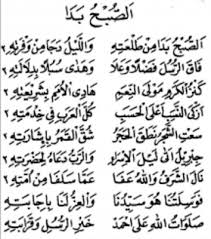 الصُّبْحُ بَدَا
الصُّبْحُ بَدَا مِنْ طَلْعَتِهِ وَاللَّيْلُ دَجَا مِنْ وَفْرَتِهِ ٢
فَاقَ الرُّسُلَ فَضْلًا وَعَلَا وَهَدَى سُبُلًا بِدَلَالَتِهِ ٢
كَنْزُ الْكَرَمِ مَوْلَى النِّعَمِ هَادِي الْأُمَمِ بِشَرِيْعَتِهِ ٢
أَزْكَى النَّسَبِ أَعْلَى الْحَسَبِ كُلُّ الْعَرَبِ فِي خِدْمَتِهِ ٢
سَعَتِ الشَّجَرُ نَطَقَ الْحَجَرُ شُقَّ الْقَمَرُ بِإِشَارَتِهِ ٢
جِبْرِيْلُ أَتَى لَيْلَ الْإِسْرَاءِ وَالرَّبُّ دَعَاهُ لِحَضْرَتِهِ ٢
نَالَ الشَّرَفَ وَاللهُ عَفَا عَمَّا سَلَفَا مِنْ أُمَّتِهِ ٢
فَوَسِيْلَتُنَا هُوَ سَيِّدُنَا وَالْعِزُّ لَنَا بِإِجَابَتِهِ
صَلَوَاتُ اللهِ عَلَى أَحْمَدَ خَيْرِ الرُّسُلِ وَقَرَابَتِهِ